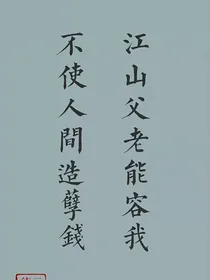 江山父老能容我
不使人間造孽錢